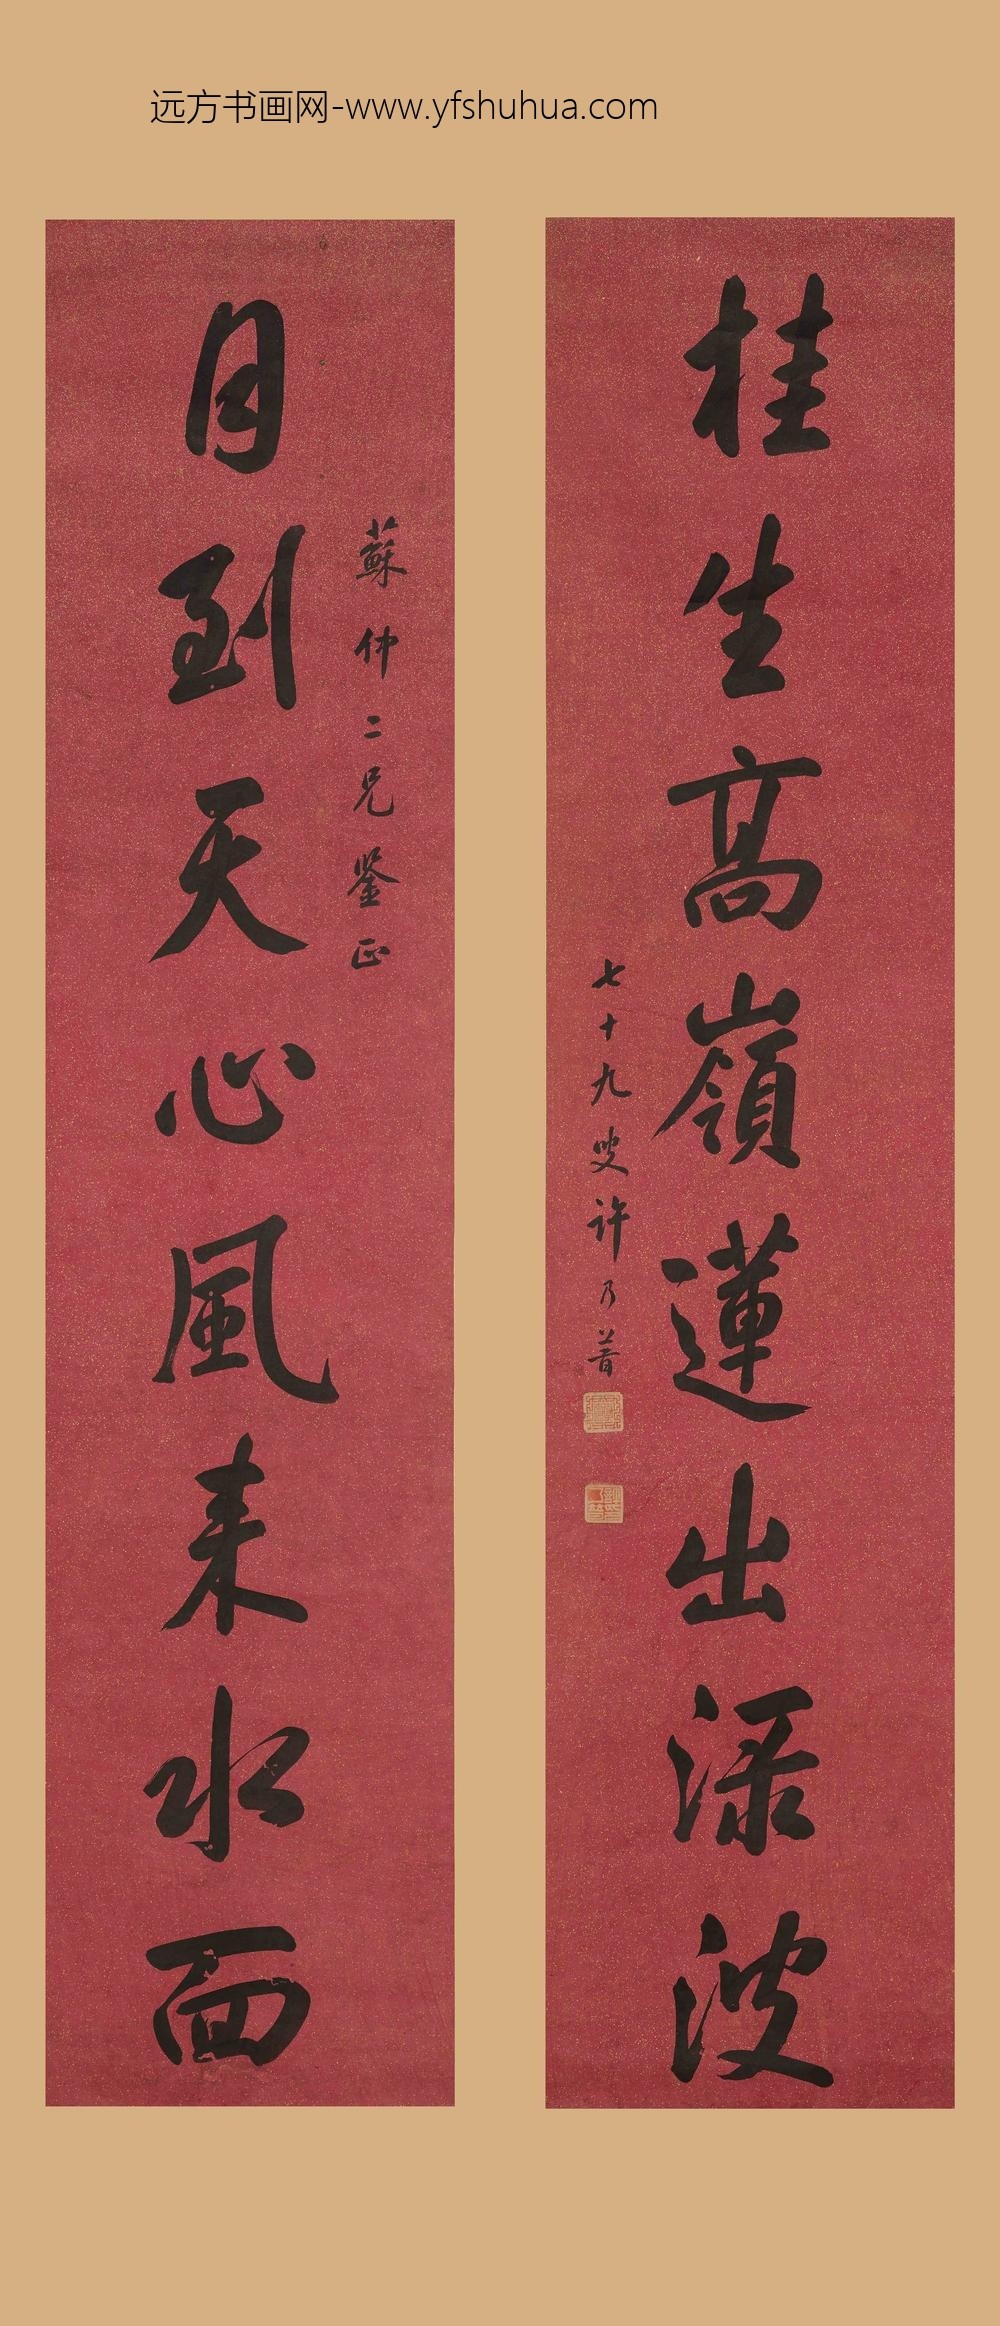 远方书画网-www.yfshuhua.com
月到天心風來水面
蘇仲二兄鑒正
桂生高嶺蓮出淥波
七十九叟許乃普